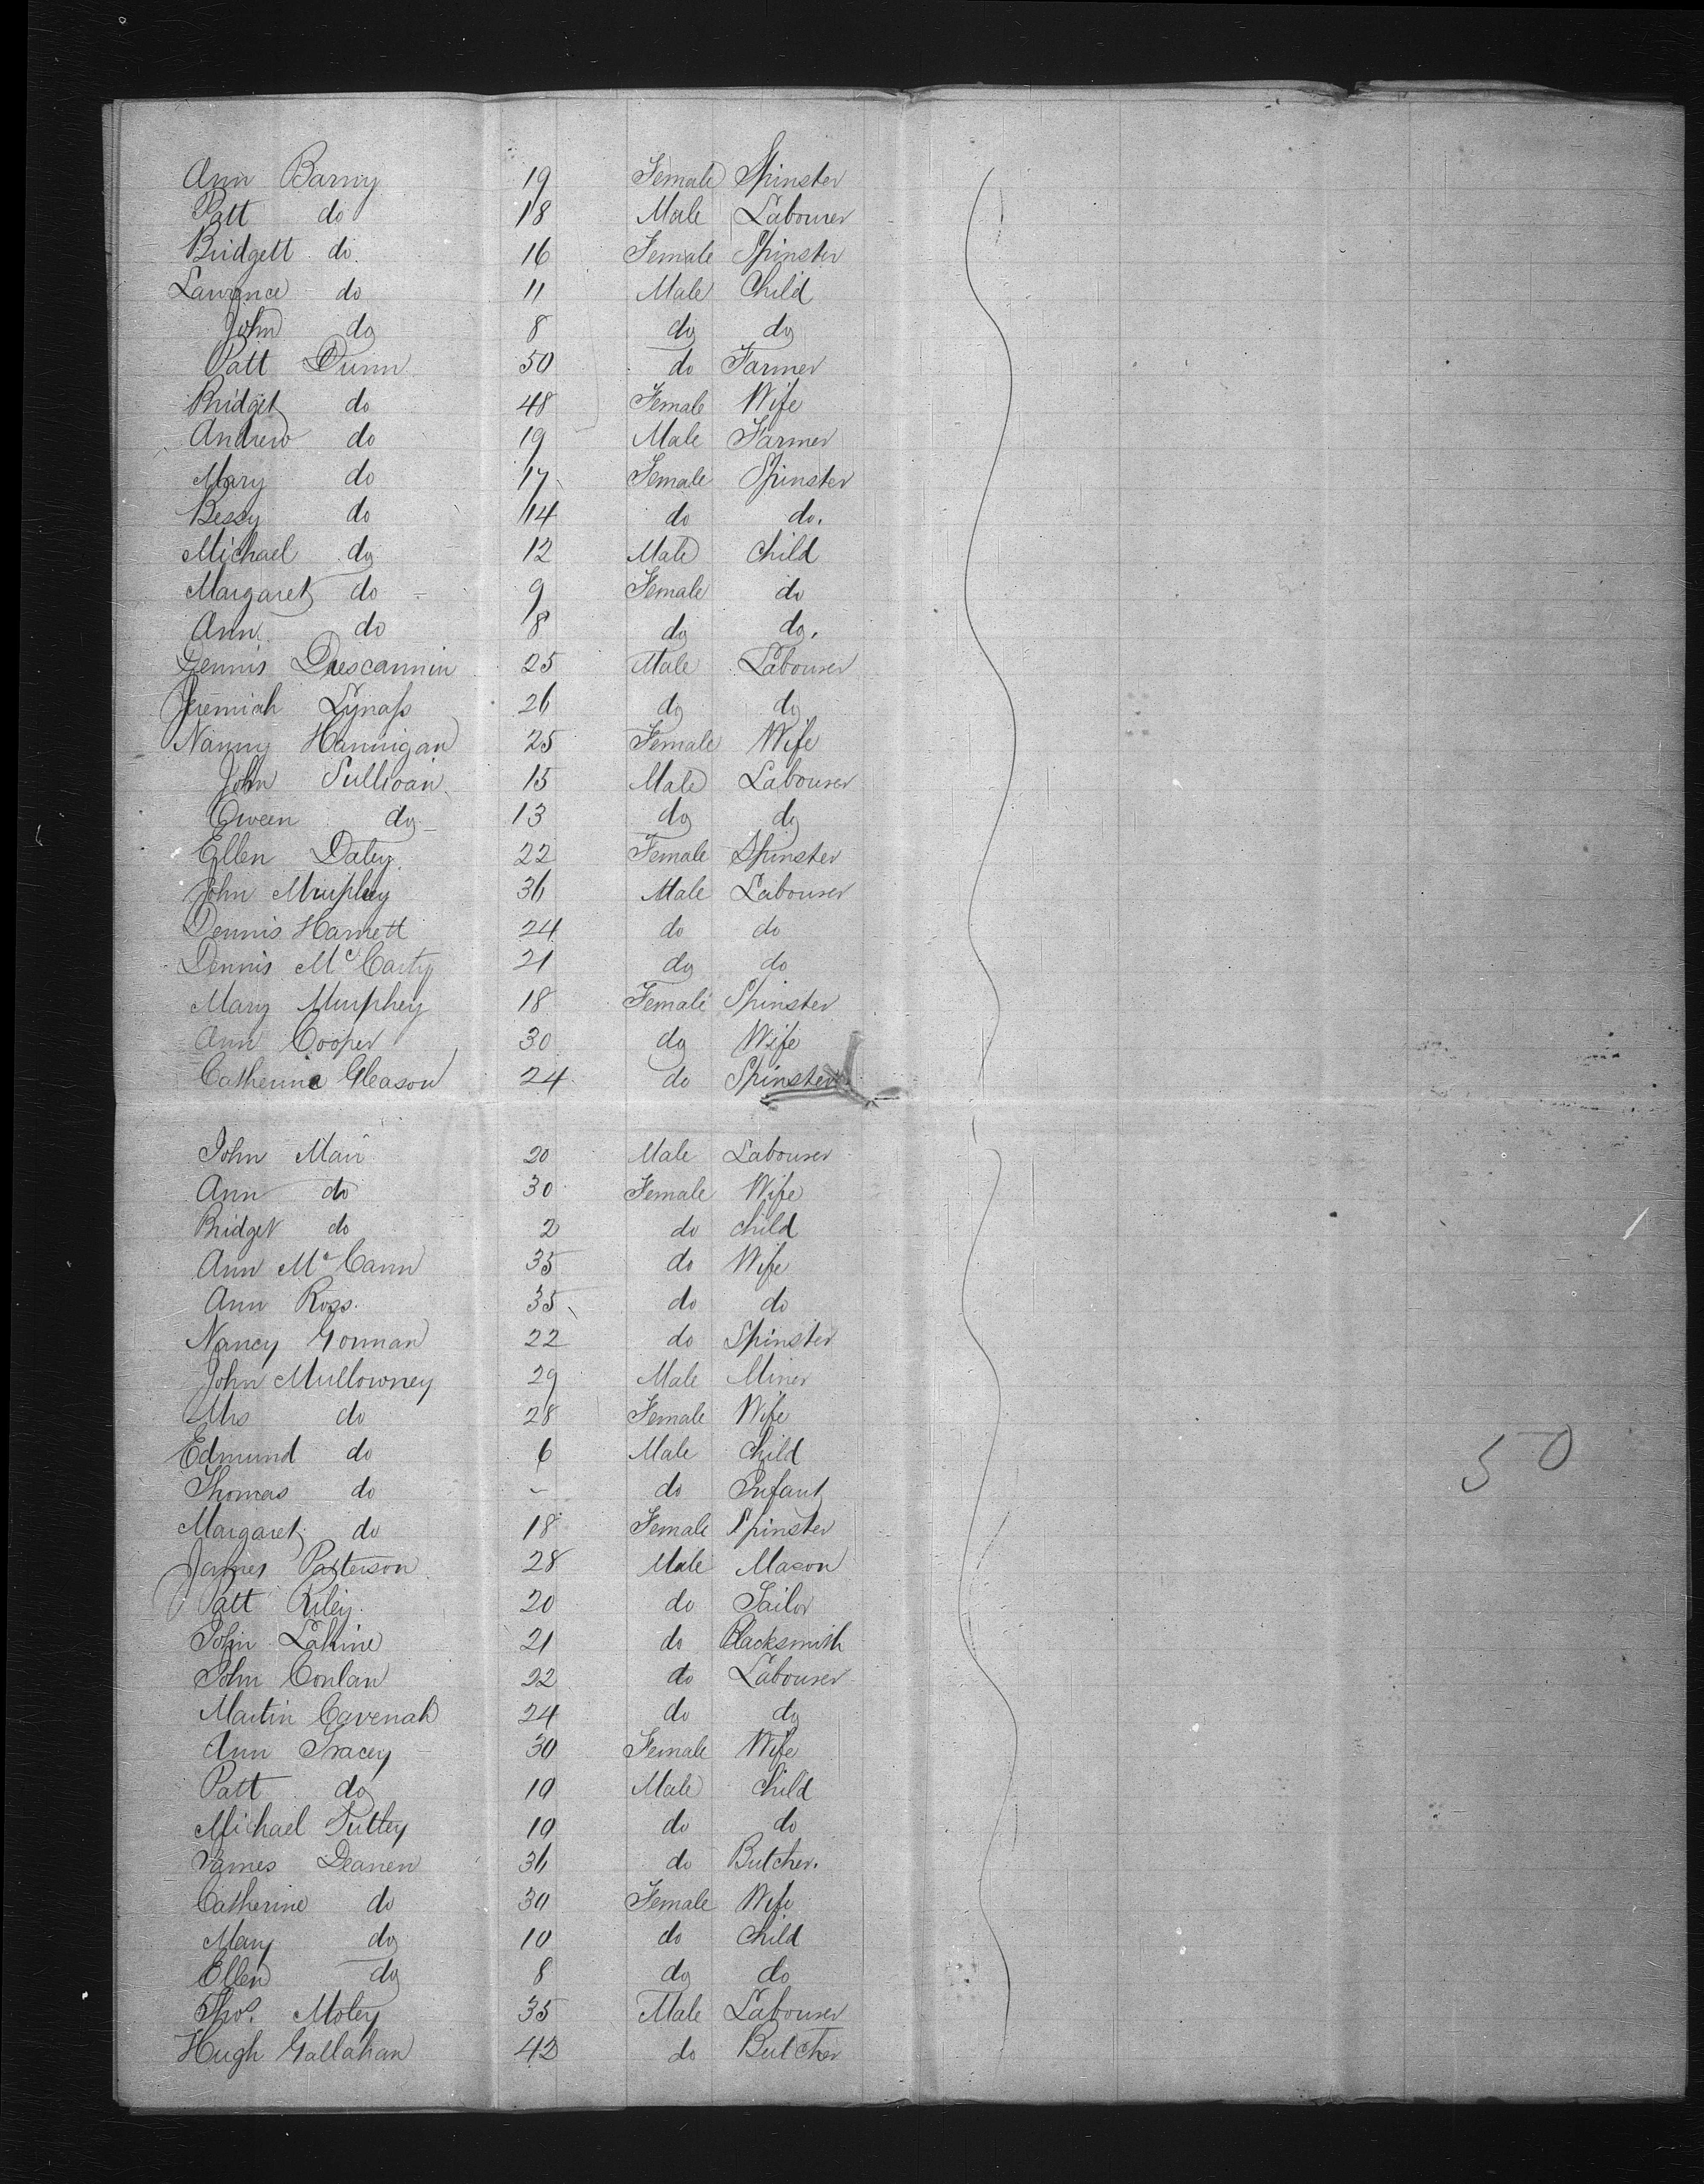 Ann Barny 19 Female Spinster
Patt do 18 Male Labourer
Bridgett do 16 Female Spinster
Lawrence do 11 Male Child
John do 8 do do
Patt Dunn 50 do Farmer
Bridget do 48 Female Wife
Andrew do 19 Male Farmer
Mary do 17 Female Spinster
Bessy do 14 do do.
Michael do 12 Male Child
Margaret do 9 Female do
Ann do 8 do do.
Dennis 25 Male Labourer
Jeremiah Lynass 26 do do
Nanny Hannigan 25 Female Wife
John Sullivan 15 Male Labourer
Owen do 13 do do
Ellen Daley 22 Female Spinster
John Murphey 36 Male Labourer
Dennis Harnett 24 do do
Dennis McCarty 21 do do
Mary Murphey 18 Female Spinster
Ann Cooper 30 do Wife
Catherine Gleason 24 do Spinster
John Mair 20 Male Labourer
Ann do 30 Female Wife
Bridget do 2 do child
Ann McCann 35 do Wife
Ann Ross 35 do do
Nancy Gorman 22 do Spinster
John Mullowney 29 Male Miner
Mrs do 28 Female Wife
Edmund do 6 Male Child
Thomas do - do Infant
Margaret do 18 Female Spinster
James Patterson 28 Male Mason
Patt Riley 20 do Tailor
John Lahine 21 do Blacksmith
John Conlan 22 do Labourer
Martin Cavenah 24 do do
Ann Tracey 30 Female Wife
Patt do 10 Male Child
Michael 10 do do
James Deanen 36 do Butcher.
Catherine do 30 Female Wife
Mary do 10 do Child
Ellen do 8 do do
Thos. Moley 35 Male Labourer
Hugh Gallahan 42 do Butcher
50